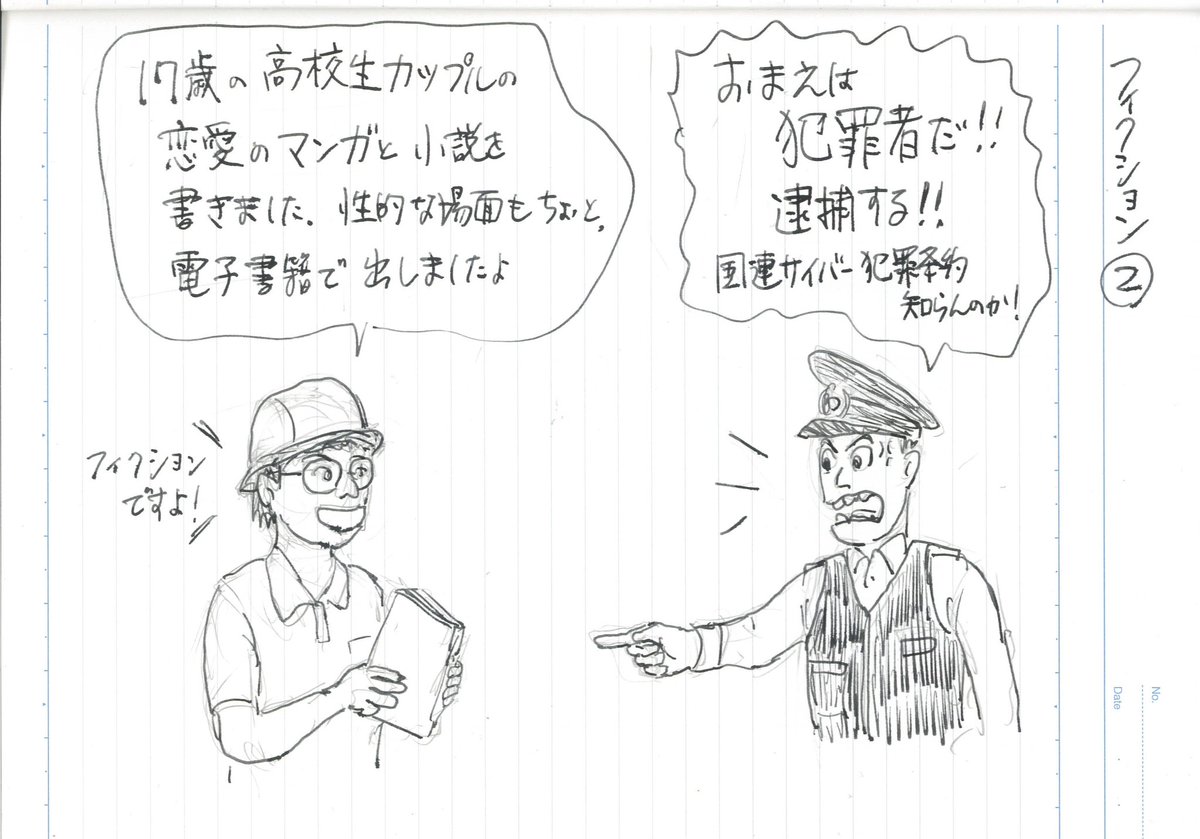 17歳の高校生カップルの
恋愛のマンガと小説を
書きました。性的な場面もちょっと。
電子書籍で出しましたよ
フィクション
ですよ!
おまえは
犯罪者だ!!
逮捕する!!
国連サイバー犯罪条約
知らんのか!
フィクション②
No.
Date